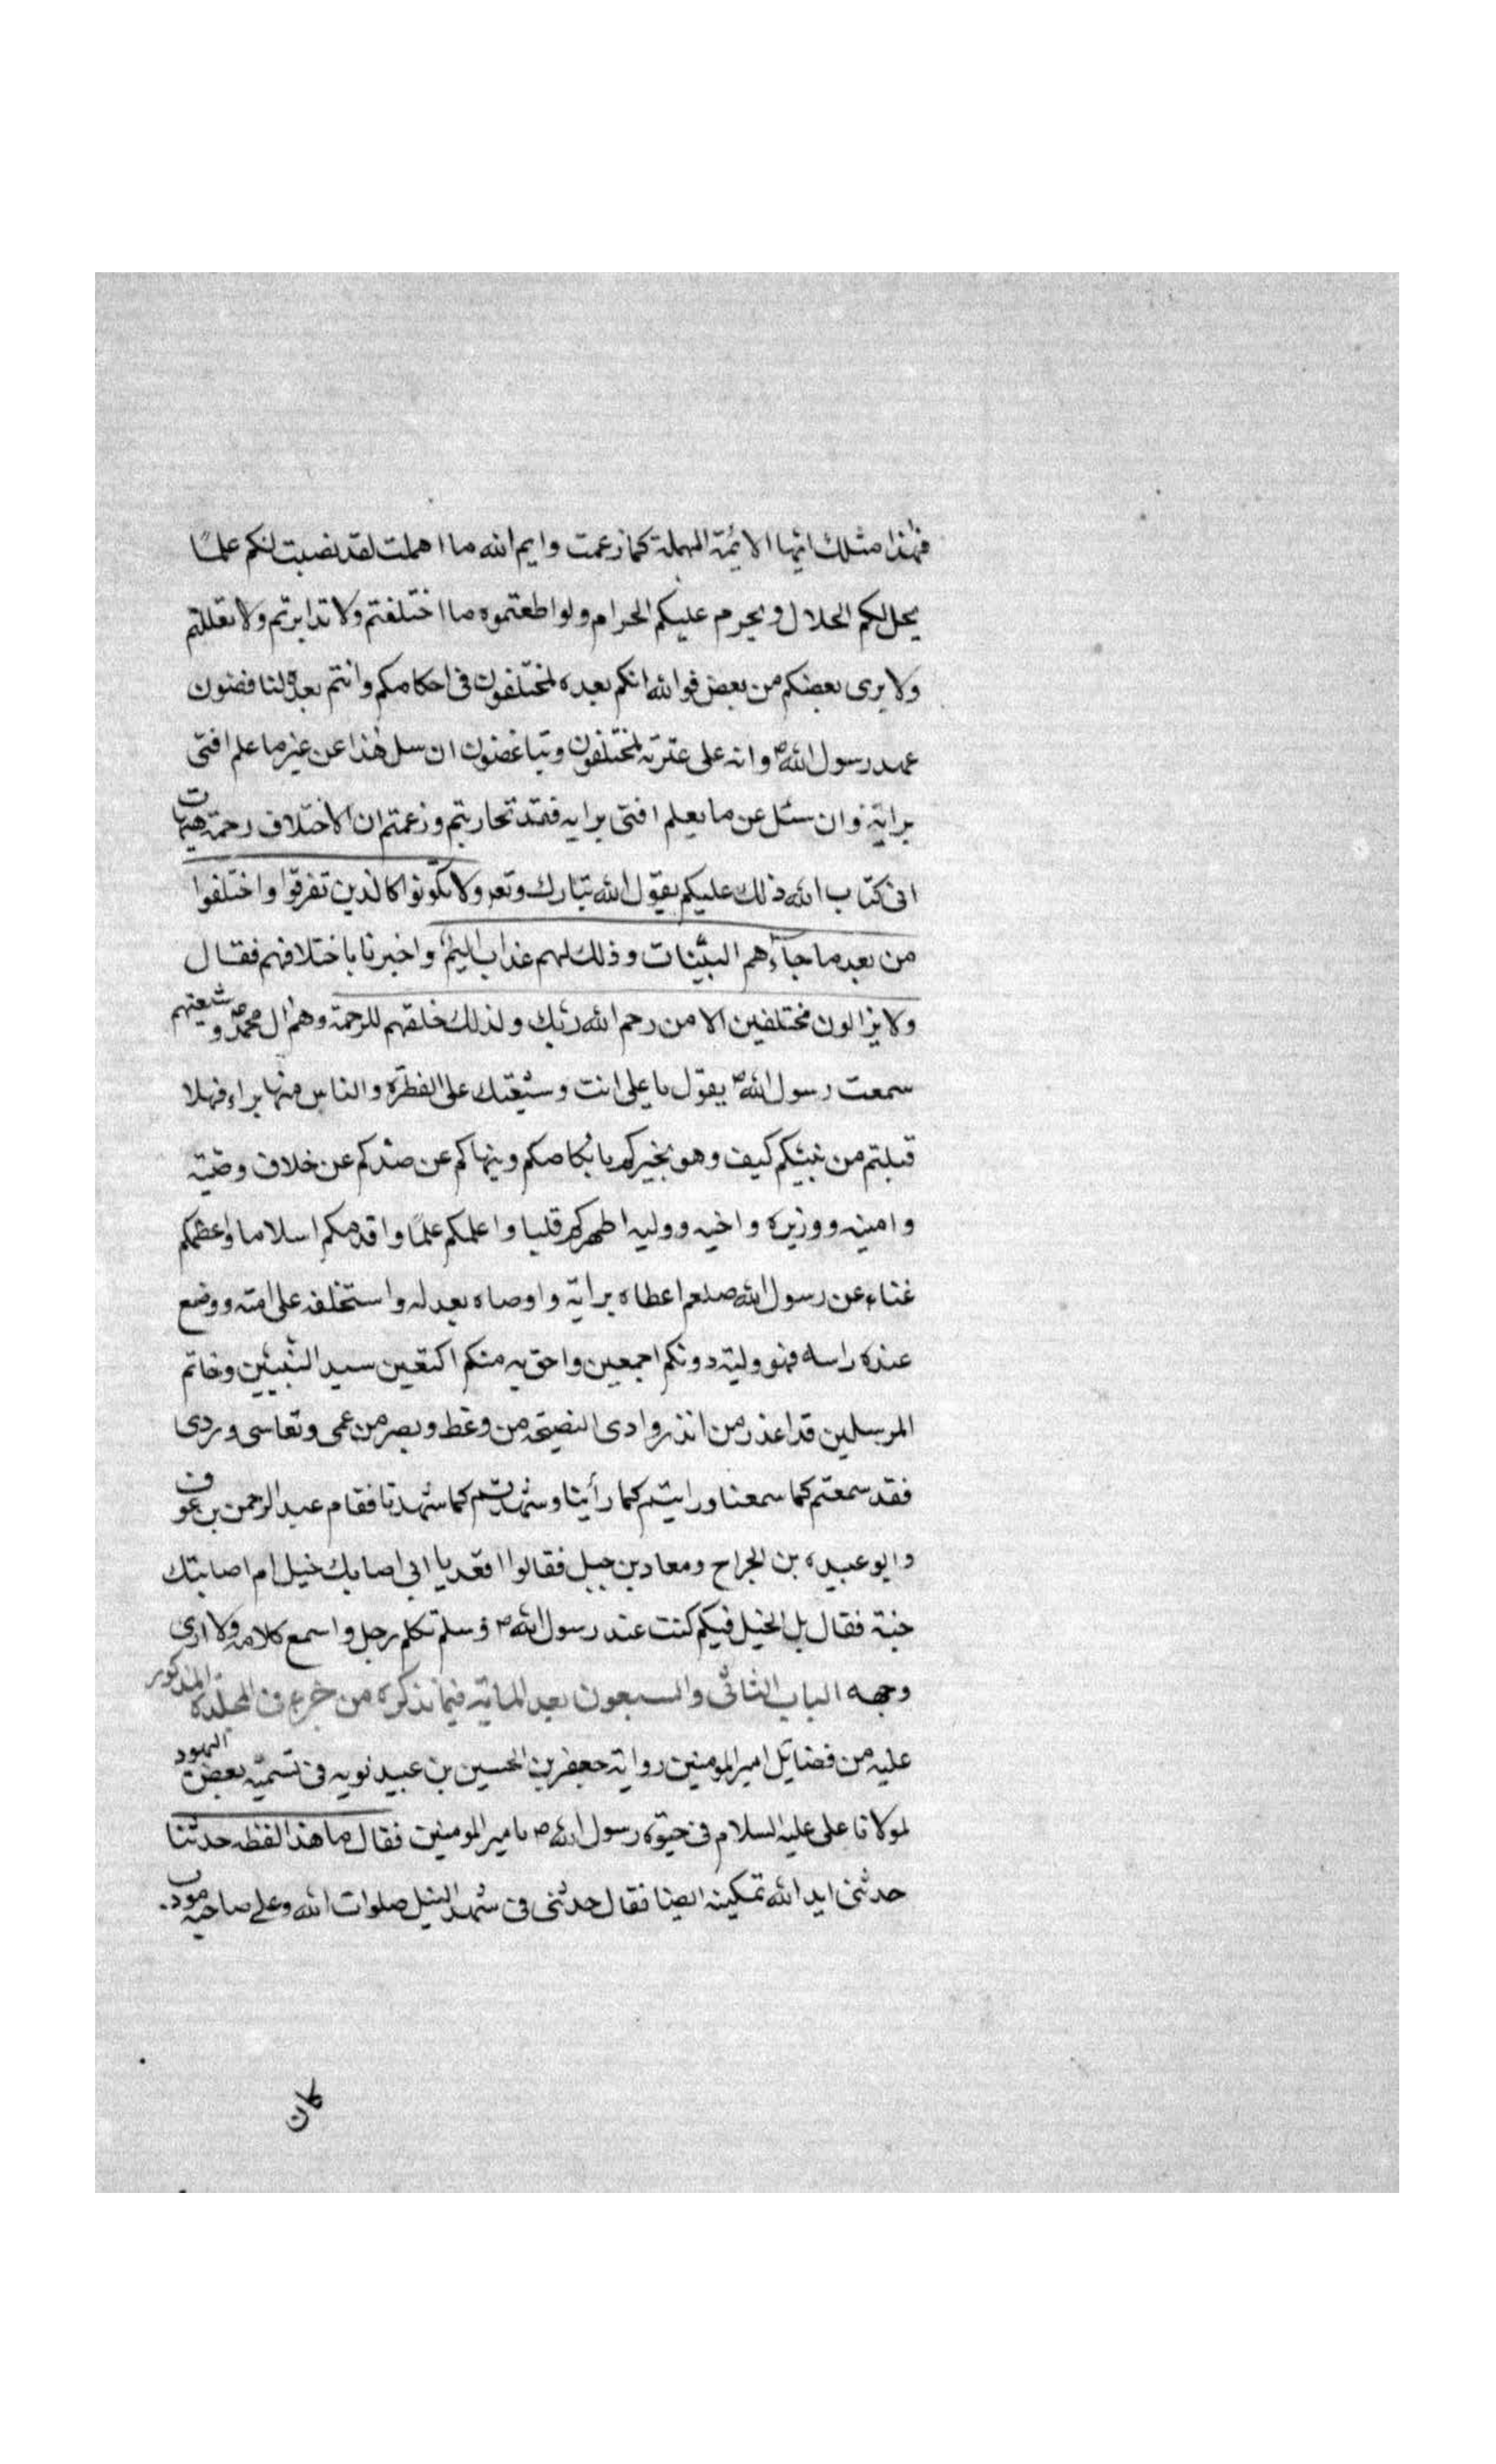 فهذا مثلك ايها الائمة المهملة كما زعمت وايم الله ما اهملت لقد نصبت لكم علمًا
يحل لكم الحلال ويحرم عليكم الحرام ولو اطعتموه ما اختلفتم ولا تدابرتم ولا تعللتم
ولا يرى بعضكم من بعض فوالله انكم بعده لمختلفون فى احكامكم وانتم بعده لناقضون
عهد رسول الله ص وانه على عترته لمختلفون وتباغضون ان سل هذا عن غير ما علم افتى
برايه وان سئل عن ما يعلم افتى برايه فقد تحاربتم وزعمتم ان الاختلاف رحمة هيهات
ابى كتاب الله ذلك عليكم يقول الله تبارك وتعه ولا تكونوا كالذين تفرقوا واختلفوا
من بعد ما جآءهم البيّنات وذلك لهم عذاب اليم واخبرنا باختلافهم فقال
ولا يزالون مختلفين الا من رحم الله ربك ولذلك خلقهم للرحمة وهم ال محمد ص وشيعتهم
سمعت رسول الله ص يقول يا على انت وشيعتك على الفطرة والناس منها براء فهلا
قبلتم من نبيكم كيف وهو يخبركم بانكاصكم وينهاكم عن صدكم عن خلاف وصيّه
وامينه ووزيره واخيه ووليه اطهركم قلبا واعلمكم علمًا واقدمكم اسلاما واعظمكم
غناء عن رسول الله صلعم اعطاه براية واوصاه بعد له واستخلفه على امته ووضع
عنده راسه فهو وليه دونكم اجمعين واحق به منكم اكتعين سيد النبيين وخاتم
المرسلين قد اعذر من انذر وادى النصيحة من وعظ وبصر من عمى وتعاسى وردى
فقد سمعتم كما سمعنا ورايتم كما رأينا وشهدتم كما شهدنا فقام عبد الرحمن بن عوف
وابو عبيده بن الجراح ومعاد بن جبل فقالوا اقعد يا ابى اصابك خبل ام اصابتك
جنة فقال بل الخبل فيكم كنت عند رسول الله ص وسلم تكلم رجل واسمع كلامه ولا ارى
وجهه الباب الثانى والسبعون بعد المائه فيما نذكره من جزء فى المجلده المذكور
عليه من فضايل امير المومنين رواية جعفر بن الحسين بن عبيد نويه فى تسميّه بعض اليهود
لمولانا على عليه السلام فى حيوة رسول الله ص بامير المومنين فقال ما هذا لفظه حدثنا
حدثنى ايد الله تمكينه ايضا فقال حدثنى فى شهد النيل صلوات الله وعلى صاحبه
كان